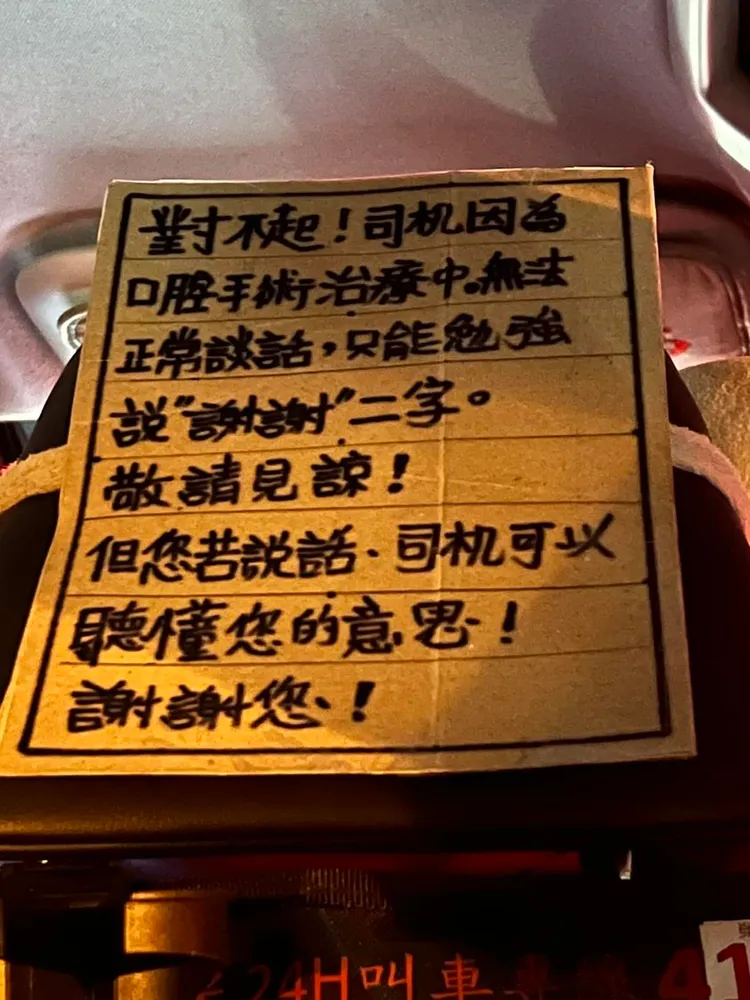 對不起！司机因為
口腔手術治療中。無法
正常談話，只能勉強
說"謝謝"二字。
敬請見諒！
但您若說話、司机可以
聽懂您的意思！
謝謝您！
24H叫車專線
41